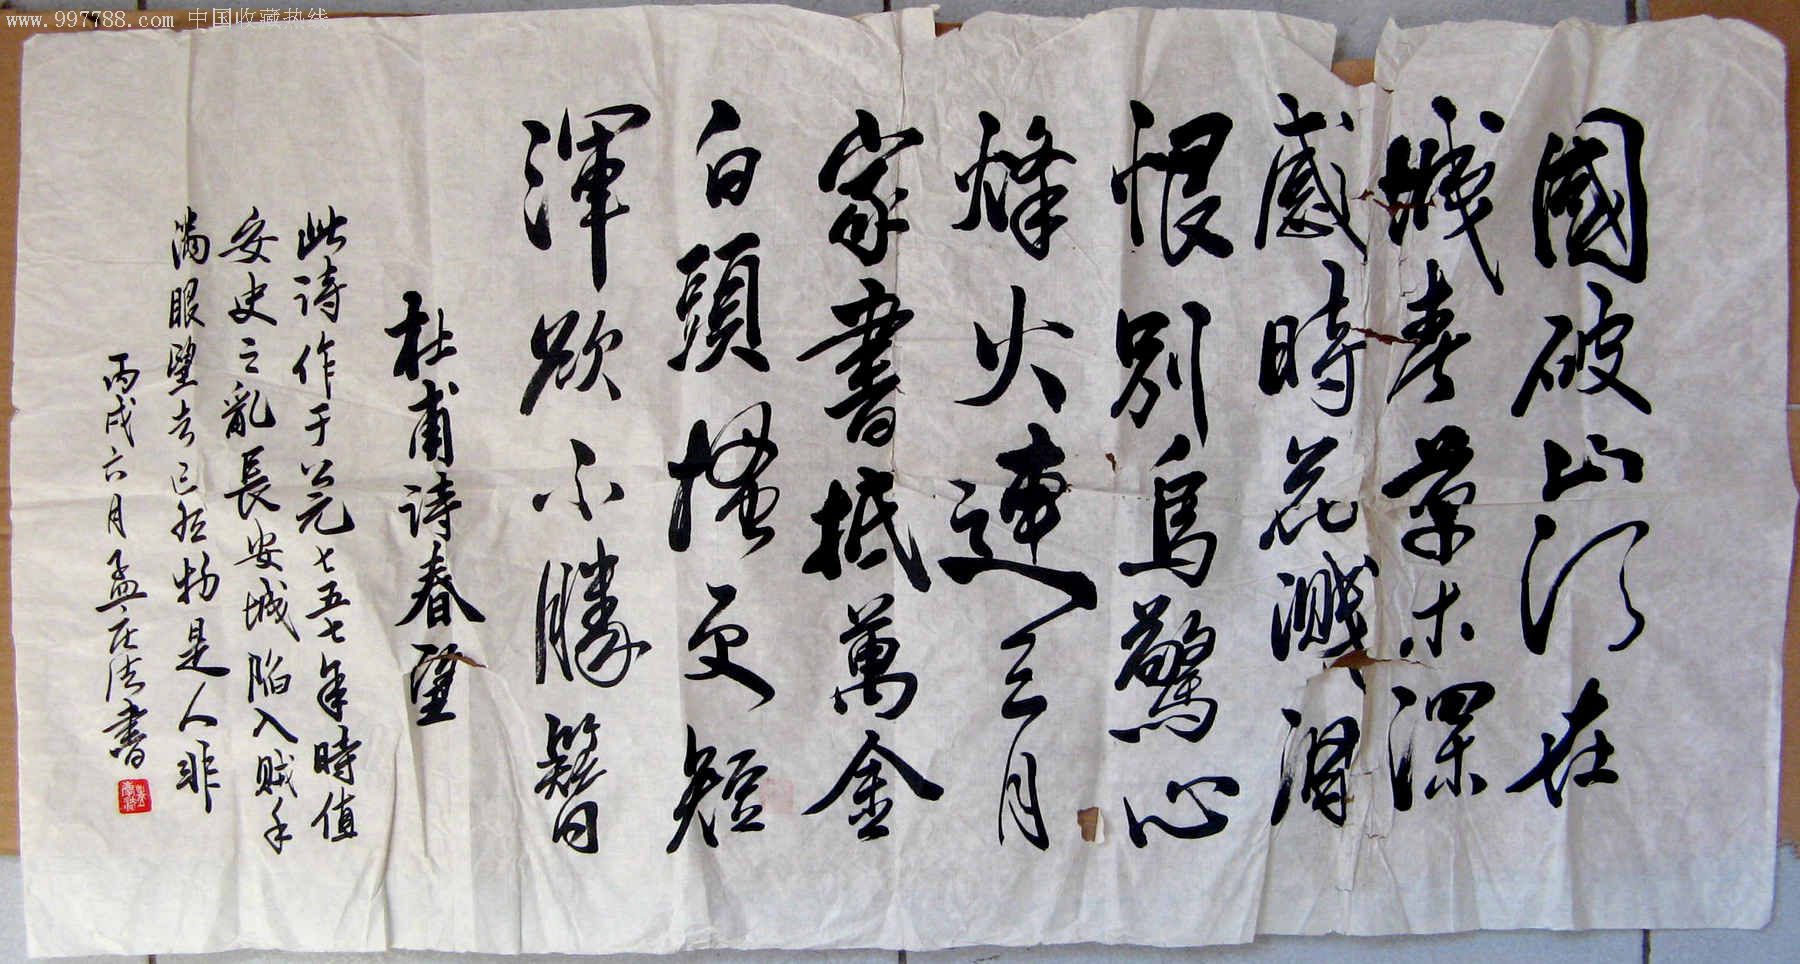 www.997788.com 中国收藏热线
國破山河在
城春草木深
感時花濺泪
恨別鳥驚心
烽火連三月
家書抵萬金
白頭搔更短
渾欲不勝簪
杜甫詩春望
此詩作于公元七五七年時值
安史之亂長安城陷入賊手
滿眼望去已物是人非
丙戌六月孟法書